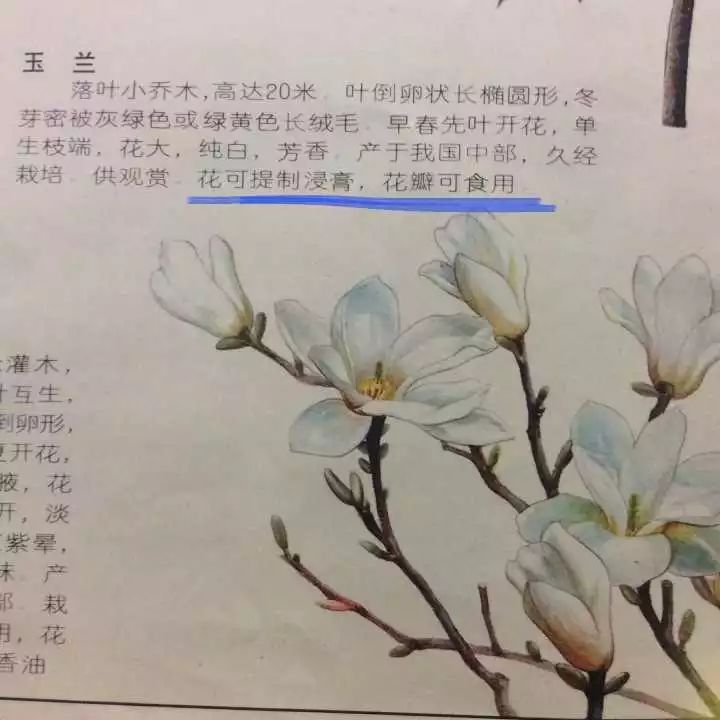 玉 兰
落叶小乔木,高达20米. 叶倒卵状长椭圆形,冬
芽密被灰绿色或绿黄色长绒毛. 早春先叶开花, 单
生枝端, 花大, 纯白, 芳香. 产于我国中部, 久经
栽培. 供观赏. 花可提制浸膏, 花瓣可食用.
灌木,
互生,
倒卵形,
开花,
腋, 花
开, 淡
紫晕,
产
栽
用, 花
香油